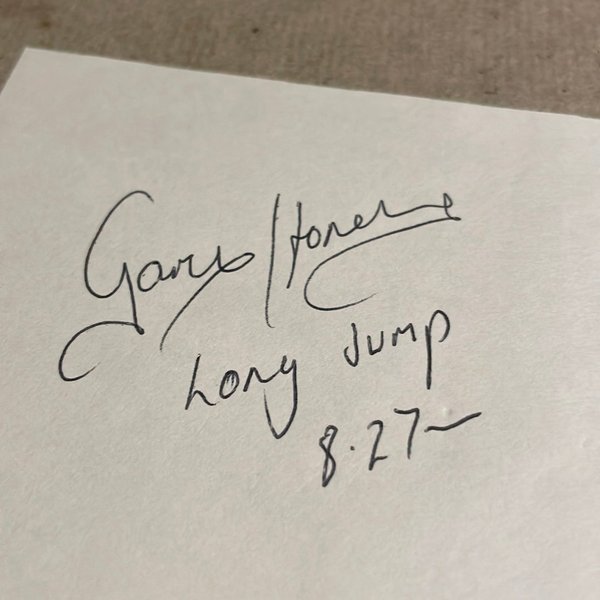 Gary Honey
Long Jump
8.27m